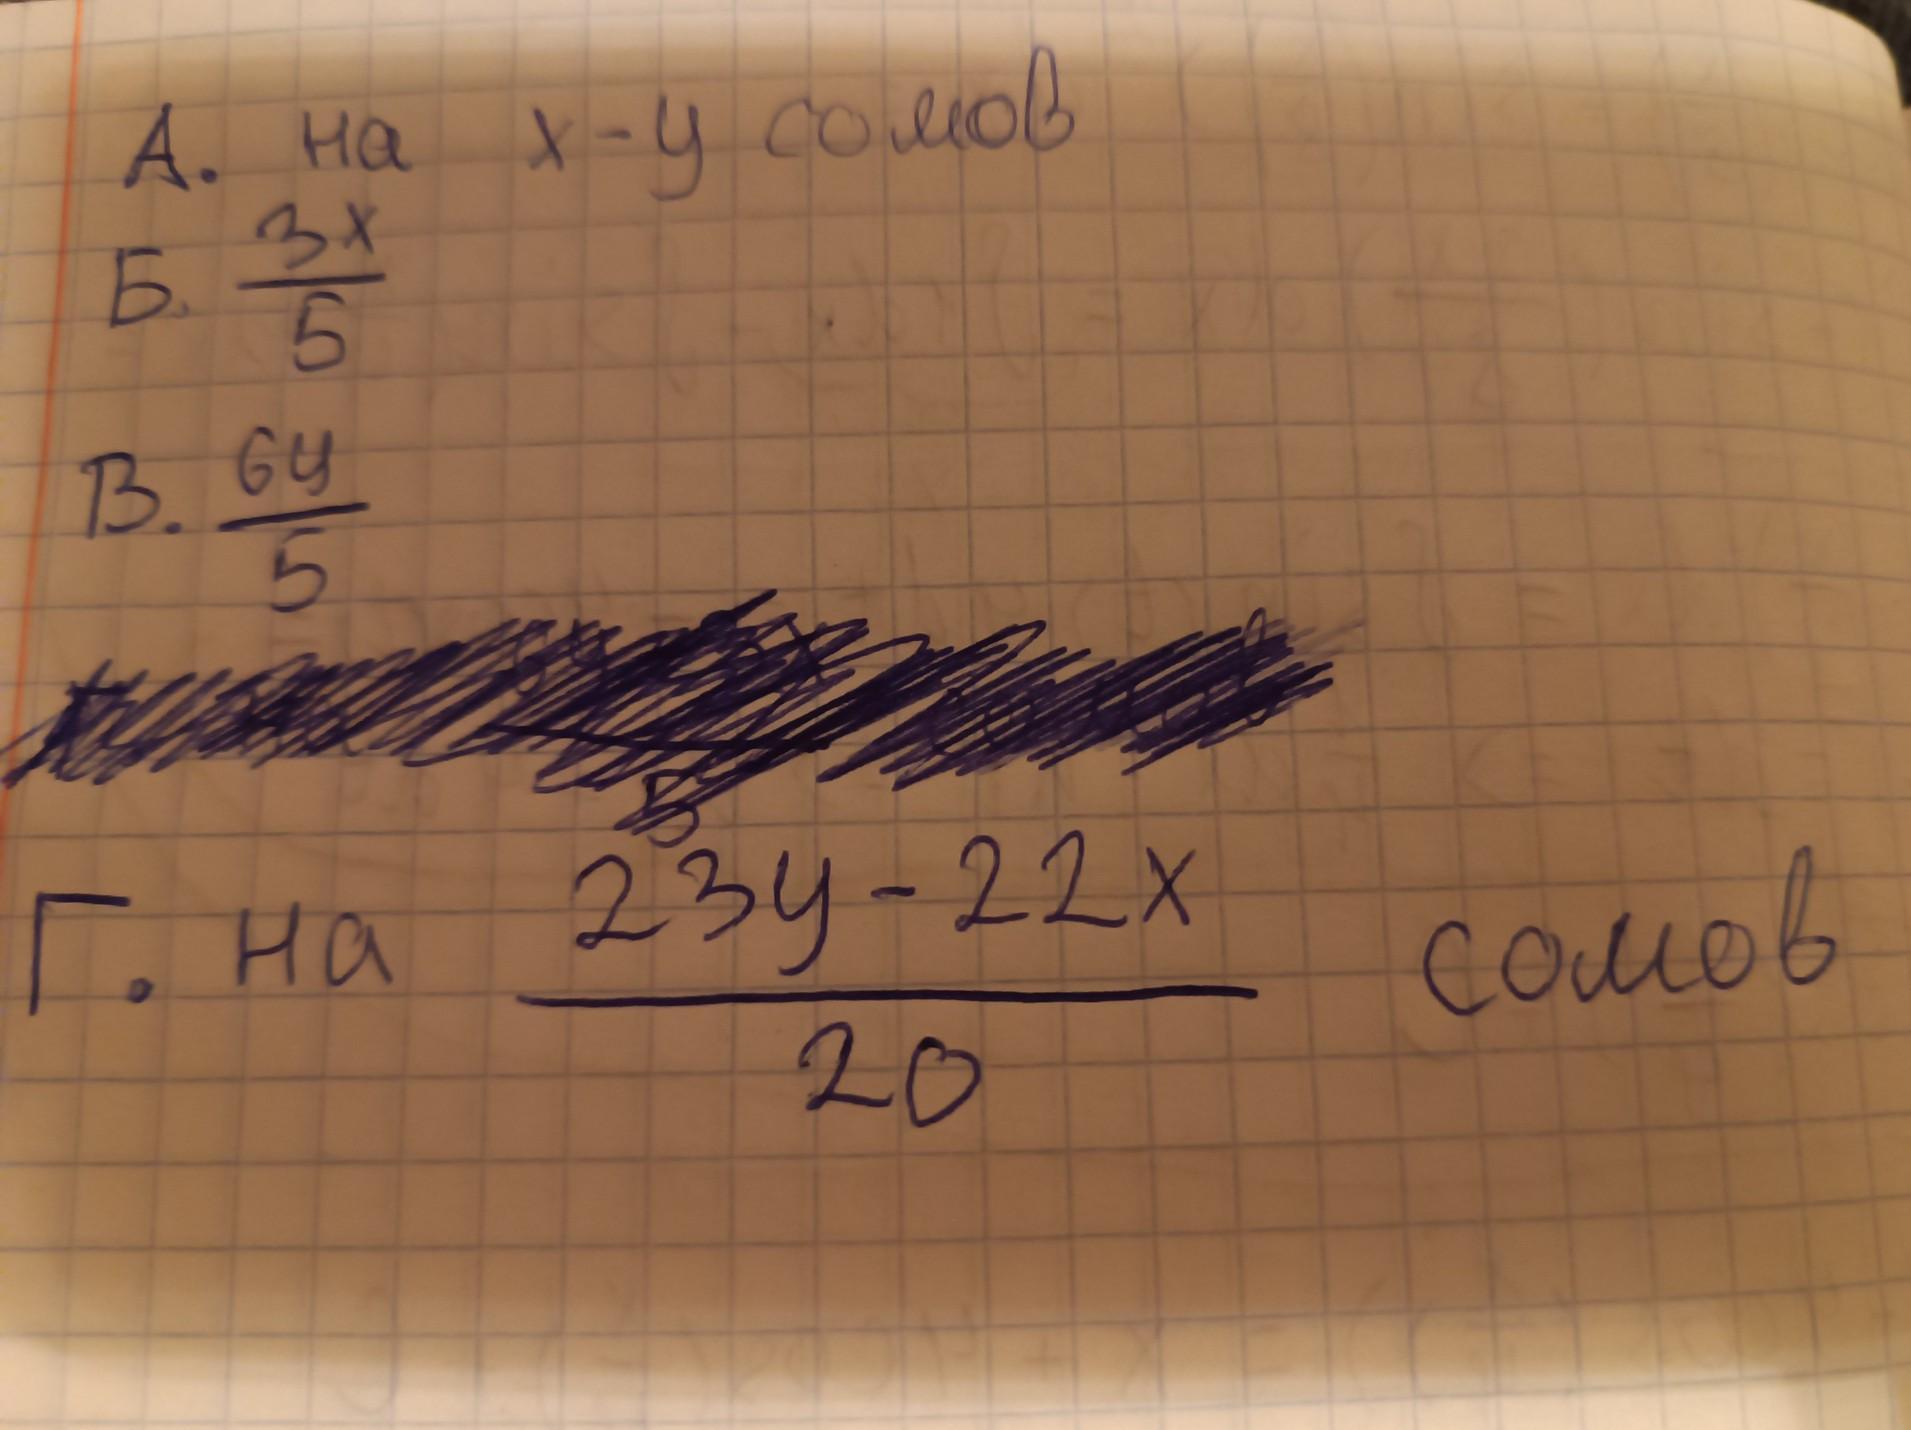 А. на x-y сомов
Б. 3x/5
В. 6y/5
Г. на 23y-22x/20 сомов